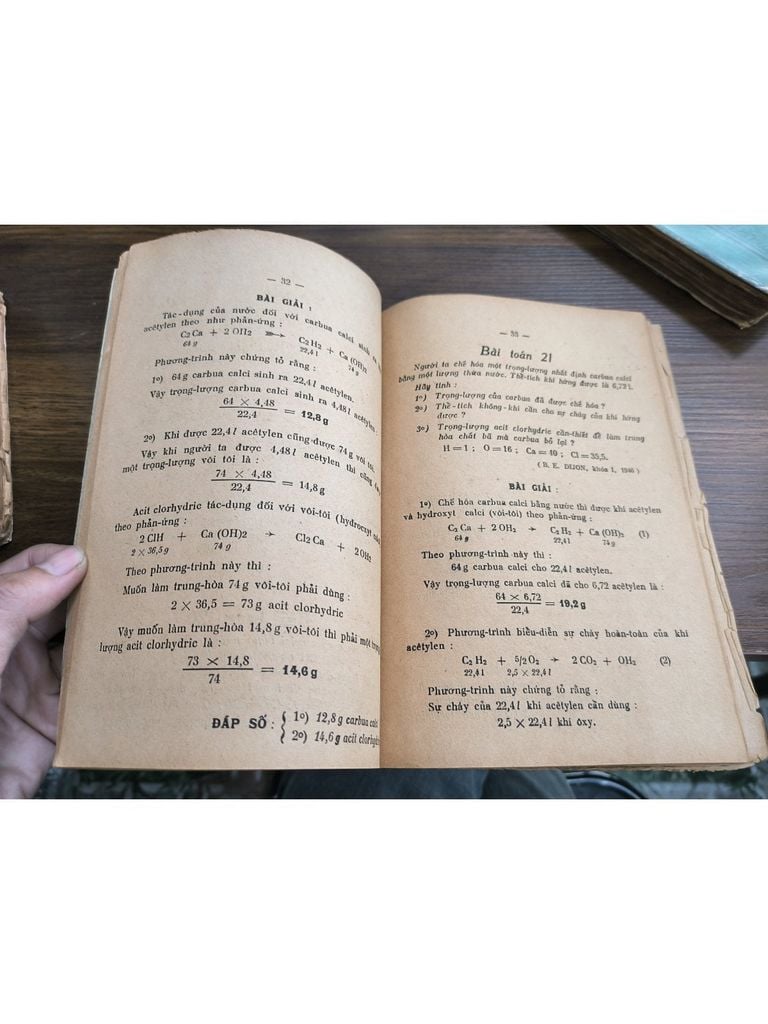 — 32 —
BÀI GIẢI :
Tác-dụng của nước đối với carbua calci sinh ra
acêtylen theo như phản-ứng :
C₂ Ca + 2 OH₂ ⟶ C₂ H₂ + Ca (OH)₂
64 g 22,4 l 74 g
Phương-trình này chứng tỏ rằng :
1º) 64 g carbua calci sinh ra 22,4 l acêtylen.
Vậy trọng-lượng carbua calci sinh ra 4,48 l acêtylen :
64 × 4,48
22,4
= 12,8 g
2º) Khi được 22,4 l acêtylen cũng được 74 g vôi tôi.
Vậy khi người ta được 4,48 l acêtylen thì cũng
một trọng-lượng vôi tôi là :
74 × 4,48
22,4
= 14,8 g
Acit clorhydric tác-dụng đối với vôi-tôi (hydroxyt
theo phản-ứng :
2 ClH + Ca (OH)2 → Cl2 Ca + 2 OH₂
2 × 36,5 g 74 g
Theo phương-trình này thì :
Muốn làm trung-hòa 74 g vôi-tôi phải dùng :
2 × 36,5 = 73 g acit clorhydric
Vậy muốn làm trung-hòa 14,8 g vôi-tôi thì phải một trọng
lượng acit clorhydric là :
73 × 14,8
74
= 14,6 g
ĐÁP SỐ : { 1º) 12,8 g carbua calci
2º) 14,6 g acit clorhydric
— 33 —
Bài toán 21
Người ta chế hóa một trọng-lượng nhất định carbua calci
bằng một lượng thừa nước. Thể-tích khí hứng được là 6,72 l.
Hãy tính :
1º) Trọng-lượng của carbua đã được chế hóa ?
2º) Thể-tích không-khí cần cho sự cháy của khí hứng
được ?
3º) Trọng-lượng acit clorhydric cần-thiết để làm trung
hòa chất bã mà carbua bỏ lại ?
H = 1 ; O = 16 ; Ca = 40 ; Cl = 35,5.
(B. E. DIJON, khóa 1, 1946)
BÀI GIẢI :
1º) Chế hóa carbua calci bằng nước thì được khí acêtylen
và hydroxyt calci (vôi-tôi) theo phản-ứng :
C₂ Ca + 2 OH₂ → C₂ H₂ + Ca (OH)₂ (1)
64 g 22,4 l 74 g
Theo phương-trình này thì :
64 g carbua calci cho 22,4 l acêtylen.
Vậy trọng-lượng carbua calci đã cho 6,72 acêtylen là :
64 × 6,72
22,4
= 19,2 g
2º) Phương-trình biểu-diễn sự cháy hoàn-toàn của khí
acêtylen :
C₂ H₂ + 5/2 O₂ → 2 CO₂ + OH₂ (2)
22,4 l 2,5 × 22,4 l
Phương-trình này chứng tỏ rằng :
Sự cháy của 22,4 l khí acêtylen cần dùng :
2,5 × 22,4 l khí ôxy.